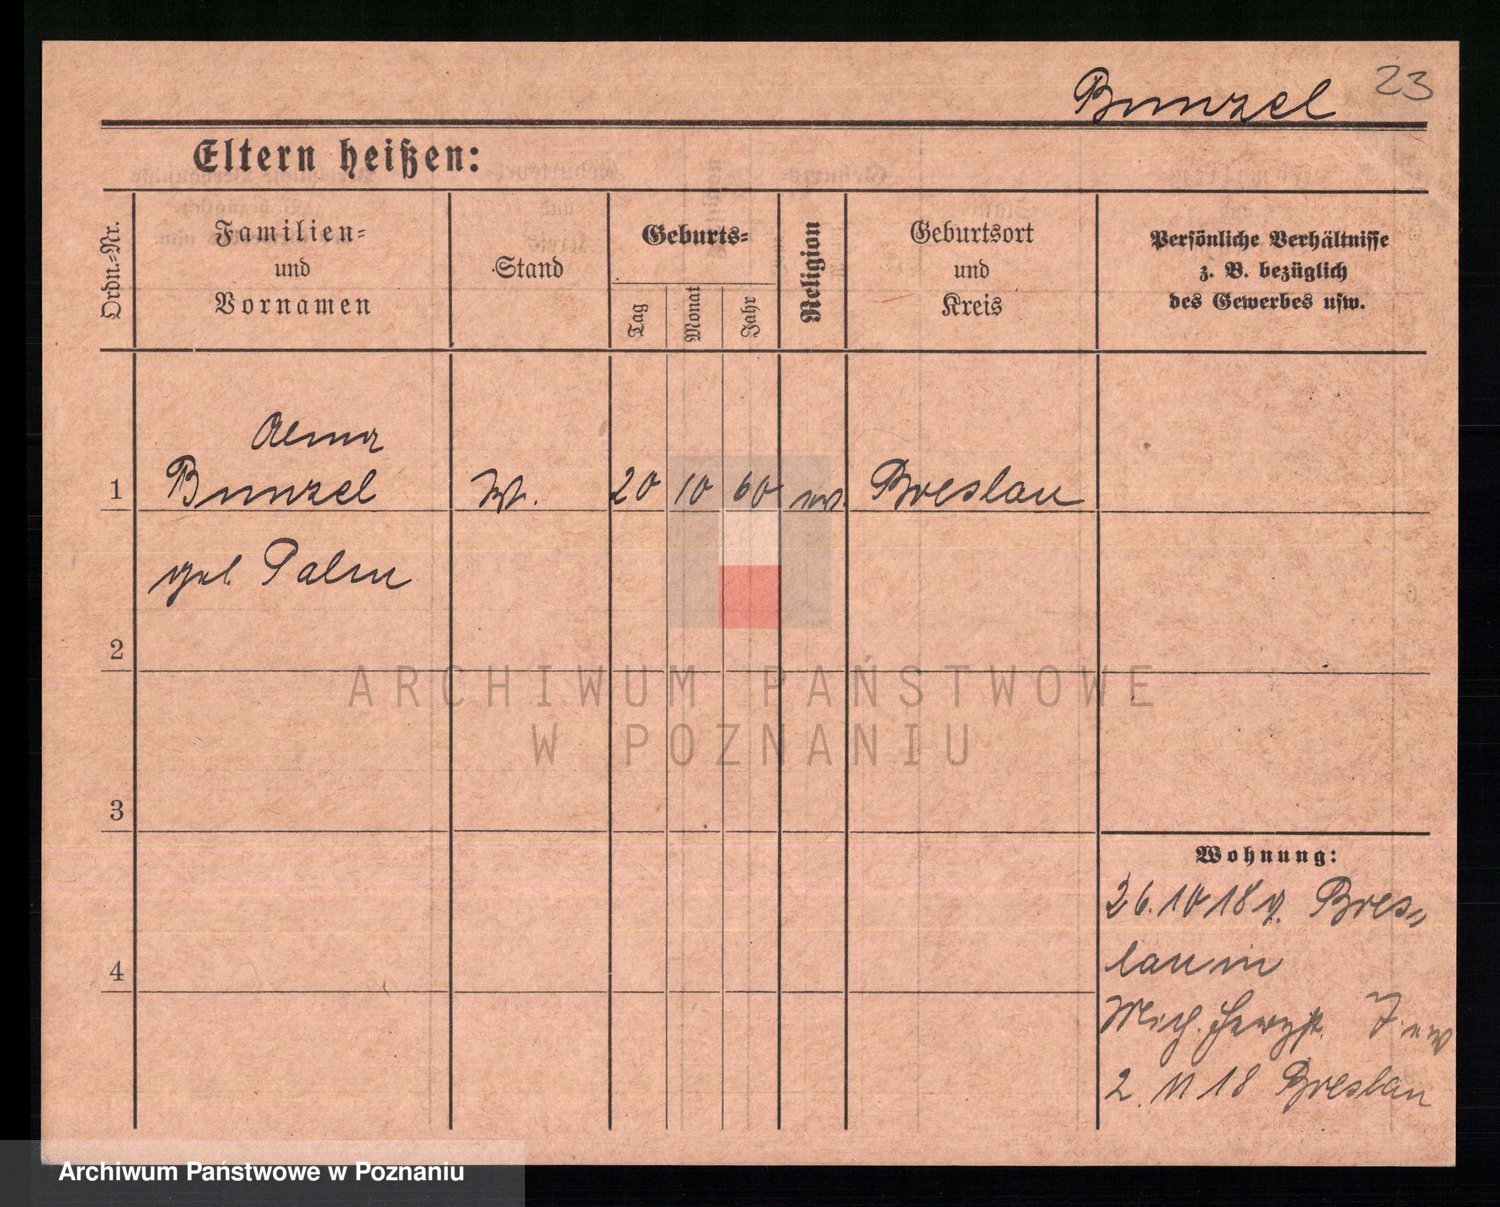 Bunzel 23
Eltern heißen:
Ordn.-Nr.
Familien-
und
Vornamen
Stand
Geburts-
Tag
Monat
Jahr
Religion
Geburtsort
und
Kreis
Persönliche Verhältnisse
z. B. bezüglich
des Gewerbes usw.
1
Bunzel
W.
20 10 60
Breslau
geb. Palm
2
3
4
Wohnung:
26.10 18 v. Bres-
lau in
2. 11 18 Breslau
ARCHIWUM PAŃSTWOWE
W POZNANIU
Archiwum Państwowe w Poznaniu